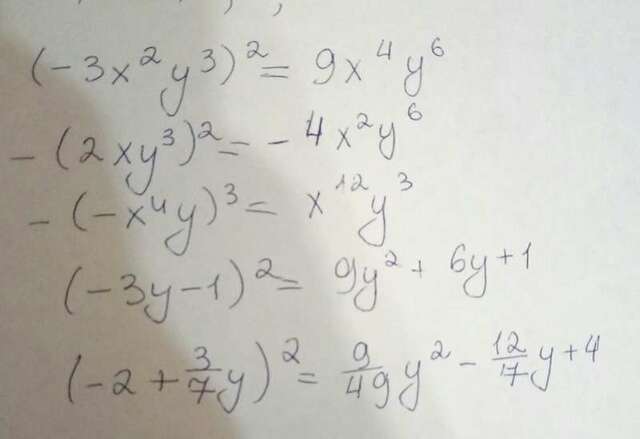 (-3x²y³)² = 9x⁴y⁶
-(2xy³)² = -4x²y⁶
-(-x⁴y)³ = x¹²y³
(-3y-1)² = 9y² + 6y+1
(-2 + 3/7y)² = 9/49y² - 12/7y+4